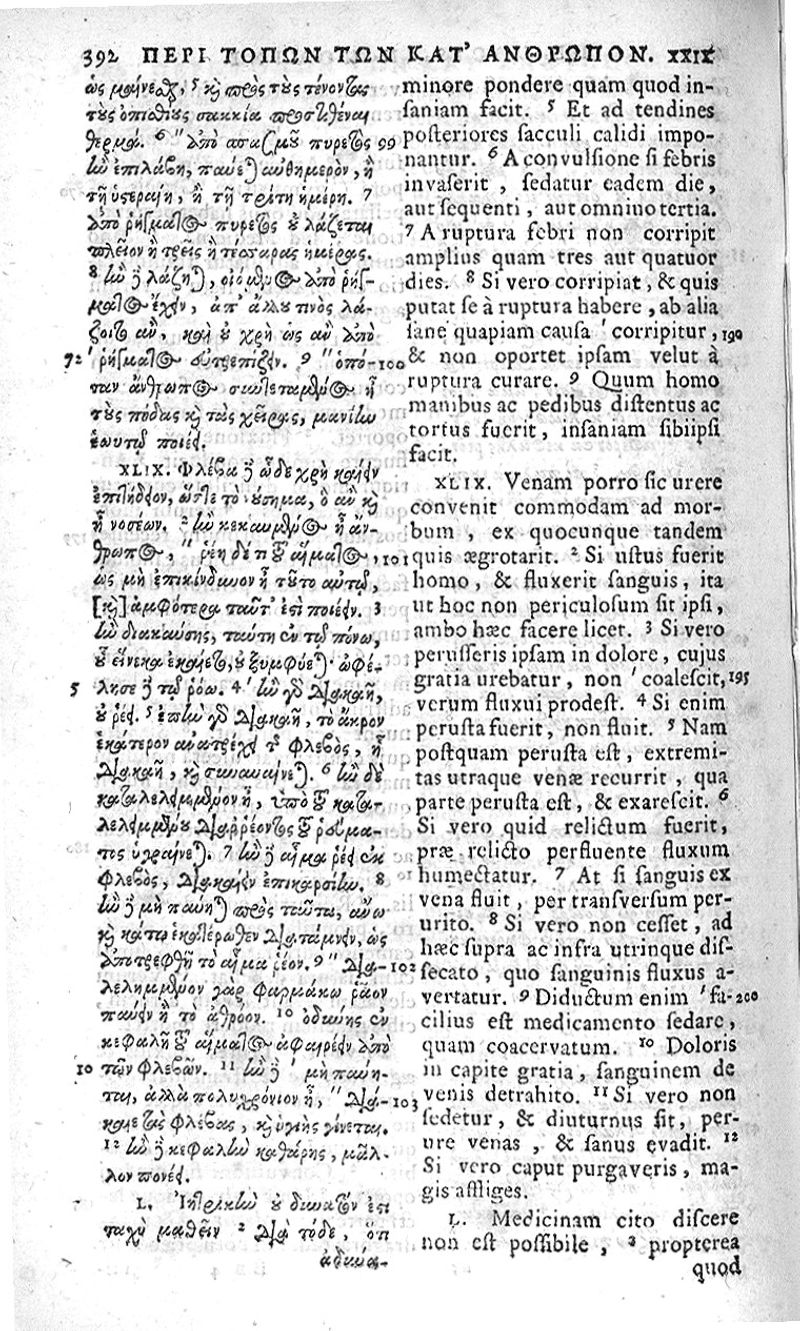 392 ΠΕΡΙ ΤΟΠΩΝ ΤΩΝ ΚΑΤ' ΑΝΘΡΩΠΟΝ. XXIX
ὡς μαίνεσθαι, 5 καὶ πρὸς τοὺς τένοντας
τοὺς ὀπισθίους σακκία προστιθέναι
θερμά. 6 " Ἀπὸ σπασμοῦ πυρετὸς 99
ἢν ἐπιλάβῃ, παύεται αὐθημερὸν, ἢ
τῇ ὑστεραίῃ, ἢ τῇ τρίτῃ ἡμέρῃ. 7
Ἀπὸ ῥήγματος πυρετὸς οὐ λάζεται
πλεῖον ἢ τρεῖς ἢ τέσσαρας ἡμέρας.
8 ἢν δὲ λάζηται, οἰόμενος ἀπὸ ῥήγ-
ματος ἔχειν, ἀπ' ἄλλου τινὸς λά-
ζοιτο ἂν, καὶ οὐ χρὴ ὡς ἂν ἀπὸ
72 ' ῥήγματος εὐτρεπίζειν. 9 " ὁπό- 100
ταν ἄνθρωπος συντεταμένος ᾖ
τοὺς πόδας καὶ τὰς χεῖρας, μανίην
ἑωυτῷ ποιέει.
XLIX. Φλέβα δὲ ὧδε χρὴ καίειν
ἐπιτήδειον, ὥστε τὸ νούσημα, ὃ ἂν καὶ
ᾖ νοσέων. 2 ἢν κεκαυμένος ᾖ ἄν-
θρωπος, " ῥέῃ δέ τι τοῦ αἵματος, 101
ὡς μὴ ἐπικίνδυνον ᾖ τοῦτο αὐτῷ,
[καὶ] ἀμφότερα ταῦτ' ἐστὶ ποιέειν. 3
ἢν διακαύσῃς, ταύτῃ ἐν τῷ πόνῳ,
οὗ εἵνεκα ἐκαίετο, οὐ ξυμφύεται· ὠφέ-
5 λησε δὲ τῷ ῥόῳ. 4 ' ἢν γὰρ διακαῇ,
οὐ ῥέει. 5 ἐπὴν γὰρ διακαῇ, τὸ ἄκρον
ἑκάτερον ἀνατρέχει τῆς φλεβὸς, ᾗ
διακαῇ, καὶ συναυαίνεται. 6 ἢν δὲ
καταλελειμμένον ᾖ, ὑπὸ τοῦ κατα-
λελειμμένου διαῤῥέοντος τοῦ ῥεύμα-
τος ὑγραίνεται. 7 ἢν δὲ αἷμα ῥέῃ ἐκ
φλεβὸς, διακαίειν ἐπικαρσίην. 8
ἢν δὲ μὴ παύηται πρὸς ταῦτα, ἄνω
καὶ κάτω ἑκατέρωθεν διατάμνειν, ὡς
ἀποτρεφθῇ τὸ αἷμα ῥέον. 9 " δια- 102
λελημμένον γὰρ φαρμάκῳ ῥᾷον
παύειν ἢ τὸ ἀθρόον. 10 ὀδύνης ἐν
κεφαλῇ τοῦ αἵματος ἀφαιρέειν ἀπὸ
10 τῶν φλεβῶν. 11 ἢν δὲ ' μὴ παύη-
ται, ἀλλὰ πολυχρόνιον ᾖ, " διά- 103
καιε τὰς φλέβας, καὶ ὑγιὴς γίνεται.
12 ἢν δὲ κεφαλὴν καθάρῃς, μᾶλ-
λον πονέει.
L. Ἰητρικὴν οὐ δυνατόν ἐστι
ταχὺ μαθεῖν 2 διὰ τόδε, ὅτι
ἀδύνα-
minore pondere quam quod in-
saniam facit. 5 Et ad tendines
posteriores sacculi calidi impo-
nantur. 6 A convulsione si febris
invaserit, sedatur eadem die,
aut sequenti, aut omnino tertia.
7 A ruptura febri non corripit
amplius quam tres aut quatuor
dies. 8 Si vero corripiat, & quis
putat se à ruptura habere, ab alia
sane quapiam causa ' corripitur, 190
& non oportet ipsam velut à
ruptura curare. 9 Quum homo
manibus ac pedibus distentus ac
tortus fuerit, insaniam sibiipsi
facit.
XLIX. Venam porro sic urere
convenit commodam ad mor-
bum, ex quocunque tandem
quis ægrotarit. 2 Si ustus fuerit
homo, & fluxerit sanguis, ita
ut hoc non periculosum sit ipsi,
ambo hæc facere licet. 3 Si vero
perusseris ipsam in dolore, cujus
gratia urebatur, non ' coalescit, 195
verum fluxui prodest. 4 Si enim
perusta fuerit, non fluit. 5 Nam
postquam perusta est, extremi-
tas utraque venæ recurrit, qua
parte perusta est, & exarescit. 6
Si vero quid relictum fuerit,
præ relicto perfluente fluxum
humectatur. 7 At si sanguis ex
vena fluit, per transversum per-
urito. 8 Si vero non cesset, ad
hæc supra ac infra utrinque dis-
secato, quo sanguinis fluxus a-
vertatur. 9 Diductum enim ' fa- 200
cilius est medicamento sedare,
quam coacervatum. 10 Doloris
in capite gratia, sanguinem de
venis detrahito. 11 Si vero non
sedetur, & diuturnus sit, per-
ure venas, & sanus evadit. 12
Si vero caput purgaveris, ma-
gis affliges.
L. Medicinam cito discere
non est possibile, 2 propterea
quod